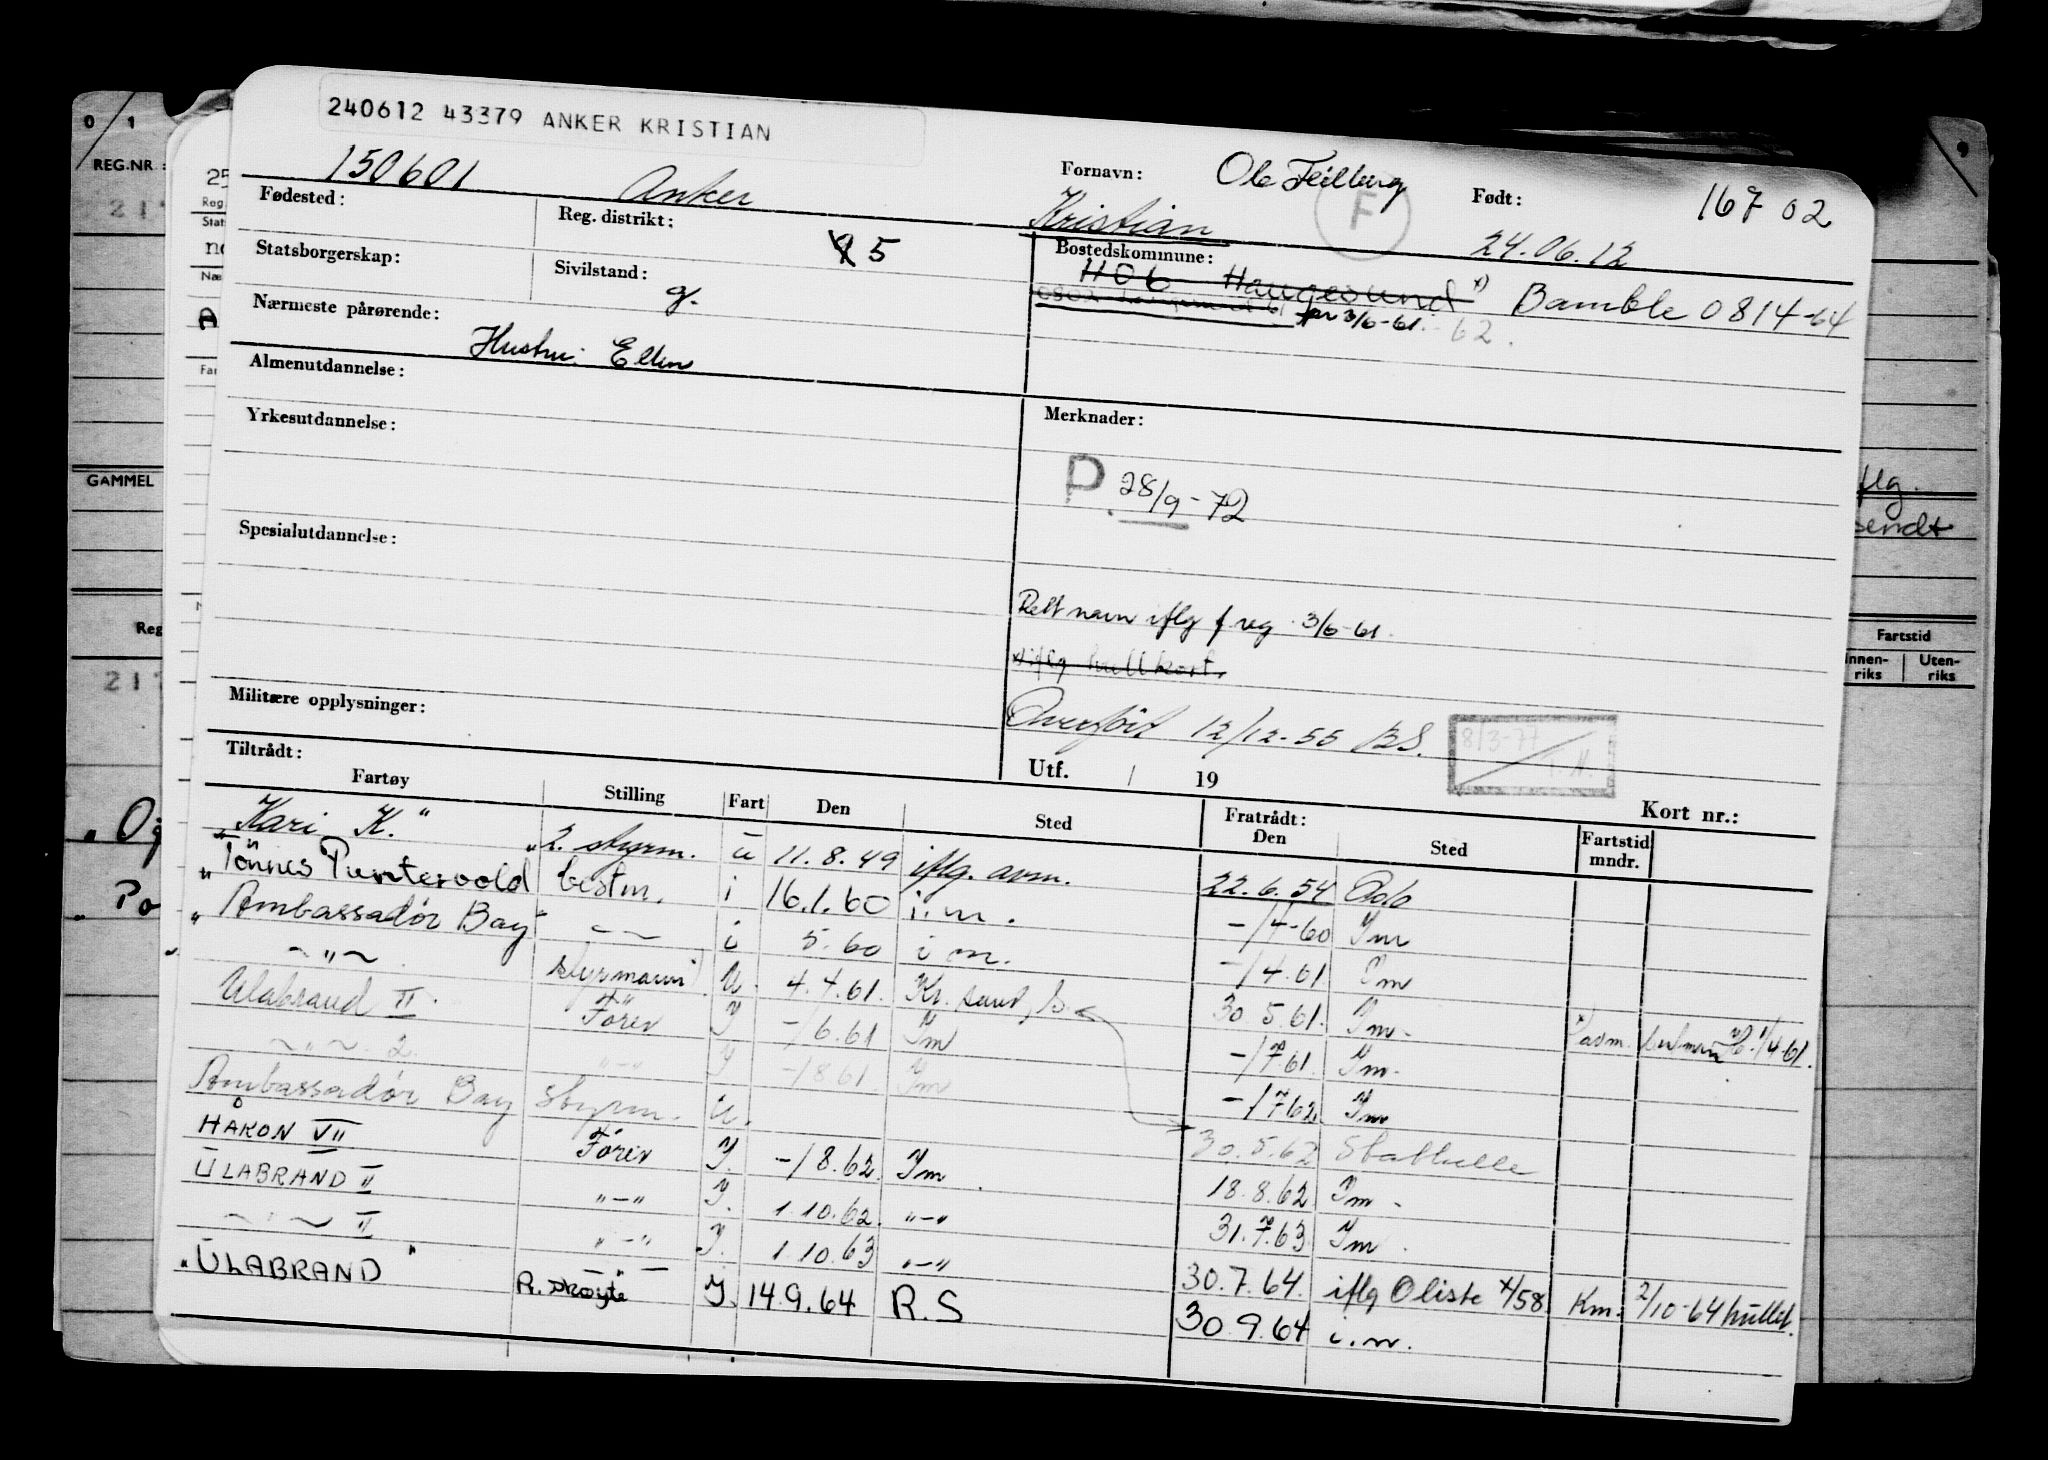 240612 43379 ANKER KRISTIAN
150601 Anker Fornavn: Ole Feilberg Født: 167 02
Kristian 24.06.12
F
Fødested: Reg. distrikt: 5 Bostedskommune:
1106 Haugesund x) Bamble 0814-64
fr 3/6-61. 62.
Statsborgerskap: Sivilstand: g.
Nærmeste pårørende:
Hustru Ellen
Almenutdannelse:
Yrkesutdannelse: Merknader:
P. 28/9-72
Spesialutdannelse:
Rett navn iflg f reg. 3/6-61.
x) iflg hullkort.
Militære opplysninger:
Overført 12/12-55 BS.
8/3-77
T.H.
Tiltrådt: Utf. / 19 Kort nr.:
Fartøy Stilling Fart Den Sted Fratrådt: Den Sted Fartstid mndr.
"Kari K." 2. styrm. u 11.8.49 iflg. avm. 22.6.54 Oslo
"Tönnes Puntervold" bestm. i 16.1.60 i.m. -/4-60 Im
"Ambassadør Bay" -〃- i 5.60 i m. -/4.61 Im
-〃- styrmann U. 4.4.61. Kr. sand, S. 30.5.61. Im. x)
Ulabrand II Fører I -/6.61 Im -/7 61. Im.
-〃- 2. -〃- I -/8 61. Im -/7 62. Im
Ambassadør Bay Styrm. U. 30.5.62 Stathelle
HÅKON VII Fører I. -/8.62 Im. 18.8.62 Im.
ULABRAND II -〃- I. 1.10.62. -〃- 31.7.63 Im.
-〃- II -〃- I. 1.10.63 -〃- 30.7.64. iflg O liste x/58 Km. 2/10-64 hullet.
"ULABRAND" R. skøyte I. 14.9.64 R.S 30.9.64 i.m.
0/1
REG.NR.:
217
GAMMEL
Reg
217
"Og
"Po
9
flg.
sendt
Fartstid
Innen-riks Uten-riks